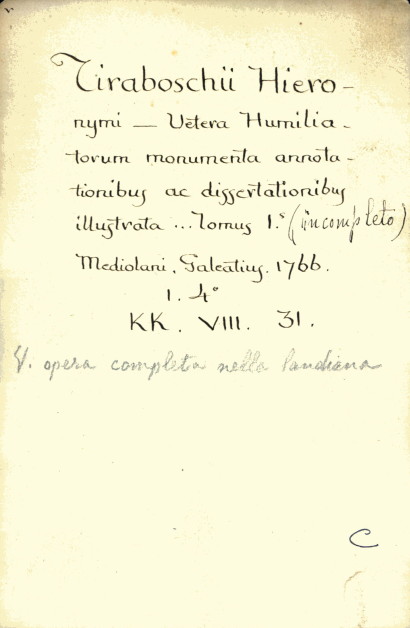 Tiraboschii Hiero-
nymi — Vetera Humilia-
torum monumenta annota-
tionibus ac dissertationibus
illustrata ... Tomus 1.° (incompleto)
Mediolani, Galeatius, 1766.
1. 4°
KK. VIII. 31.
V. opera completa nella landiana
C